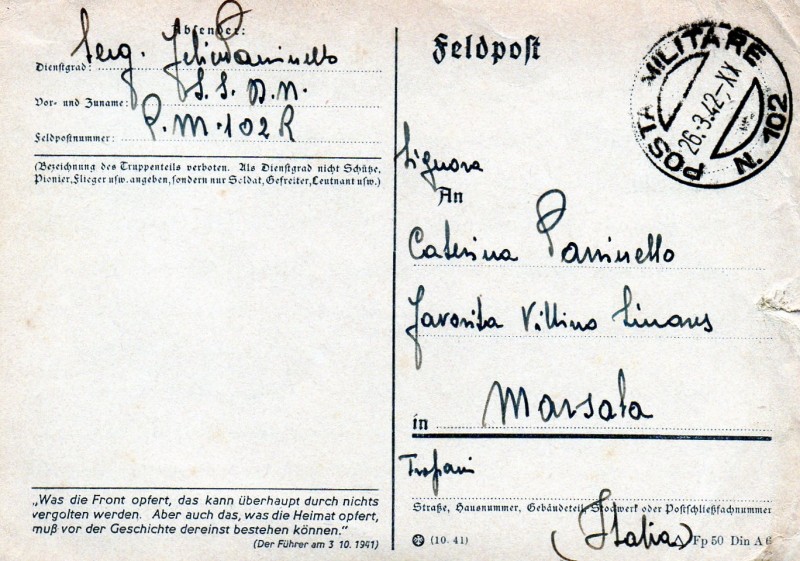 Absender:
Serg.
Dienstgrad:
S. S. A. N.
Vor- und Zuname:
P. M. 102 R
Feldpostnummer:
(Bezeichnung des Truppenteils verboten. Als Dienstgrad nicht Schütze,
Pionier, Flieger usw. angeben, sondern nur Soldat, Gefreiter, Leutnant usw.)
„Was die Front opfert, das kann überhaupt durch nichts
vergolten werden. Aber auch das, was die Heimat opfert,
muß vor der Geschichte dereinst bestehen können."
(Der Führer am 3 10. 1941)
Feldpost
POSTA MILITARE
26.3.42-XX
N. 102
Signora
An
Caterina Parrinello
Favorita Villino Linares
in Marsala
Trapani
Straße, Hausnummer, Gebäudeteil, Stockwerk oder Postschließfachnummer
(Italia)
(10. 41)
Fp 50 Din A 6